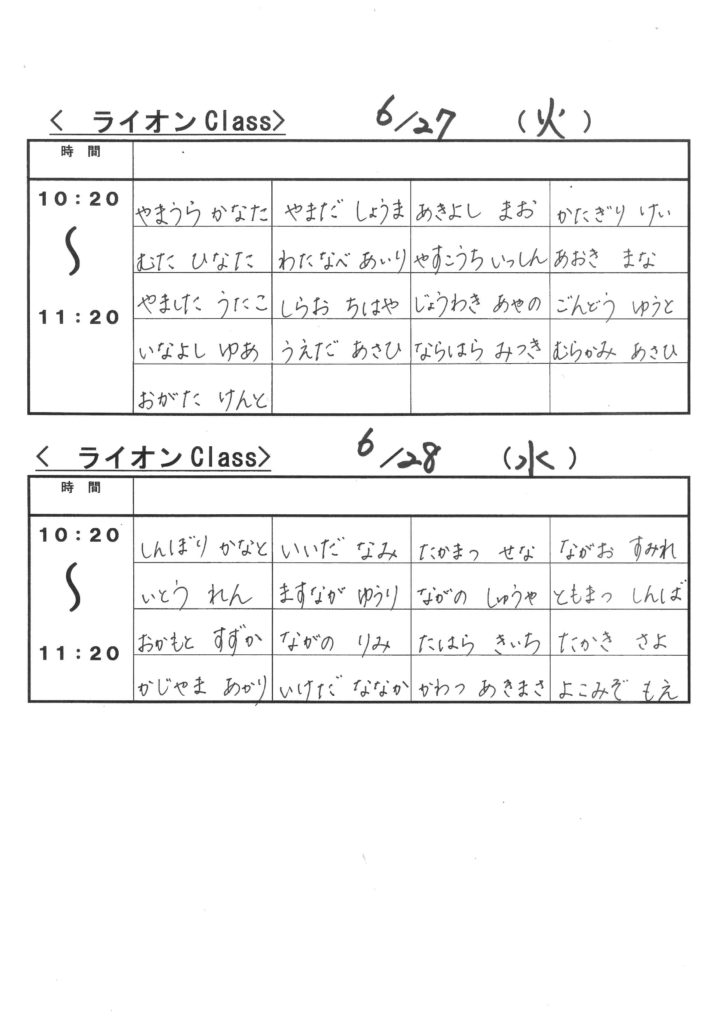 < ライオンClass> 6/27 (火)
時 間
10:20 やまうら かなた やまだ しょうま あきよし まお かたぎり けい
〜 むた ひなた わたなべ あいり やすこうち いっしん あおき まな
11:20 やました うたこ しらお ちはや じょうわき あやの ごんどう ゆうと
いなよし ゆあ うえだ あさひ ならはら みつき むらかみ あさひ
おがた けんと
< ライオンClass> 6/28 (水)
時 間
10:20 しんぼり かなと いいだ なみ たかまつ せな ながお すみれ
〜 いとう れん ますなが ゆうり ながの しゅうや ともまつ しんば
11:20 おかもと すずか ながの りみ たはら きいち たかき さよ
かじやま あかり いけだ ななか かわつ あきまさ よこみぞ もえ